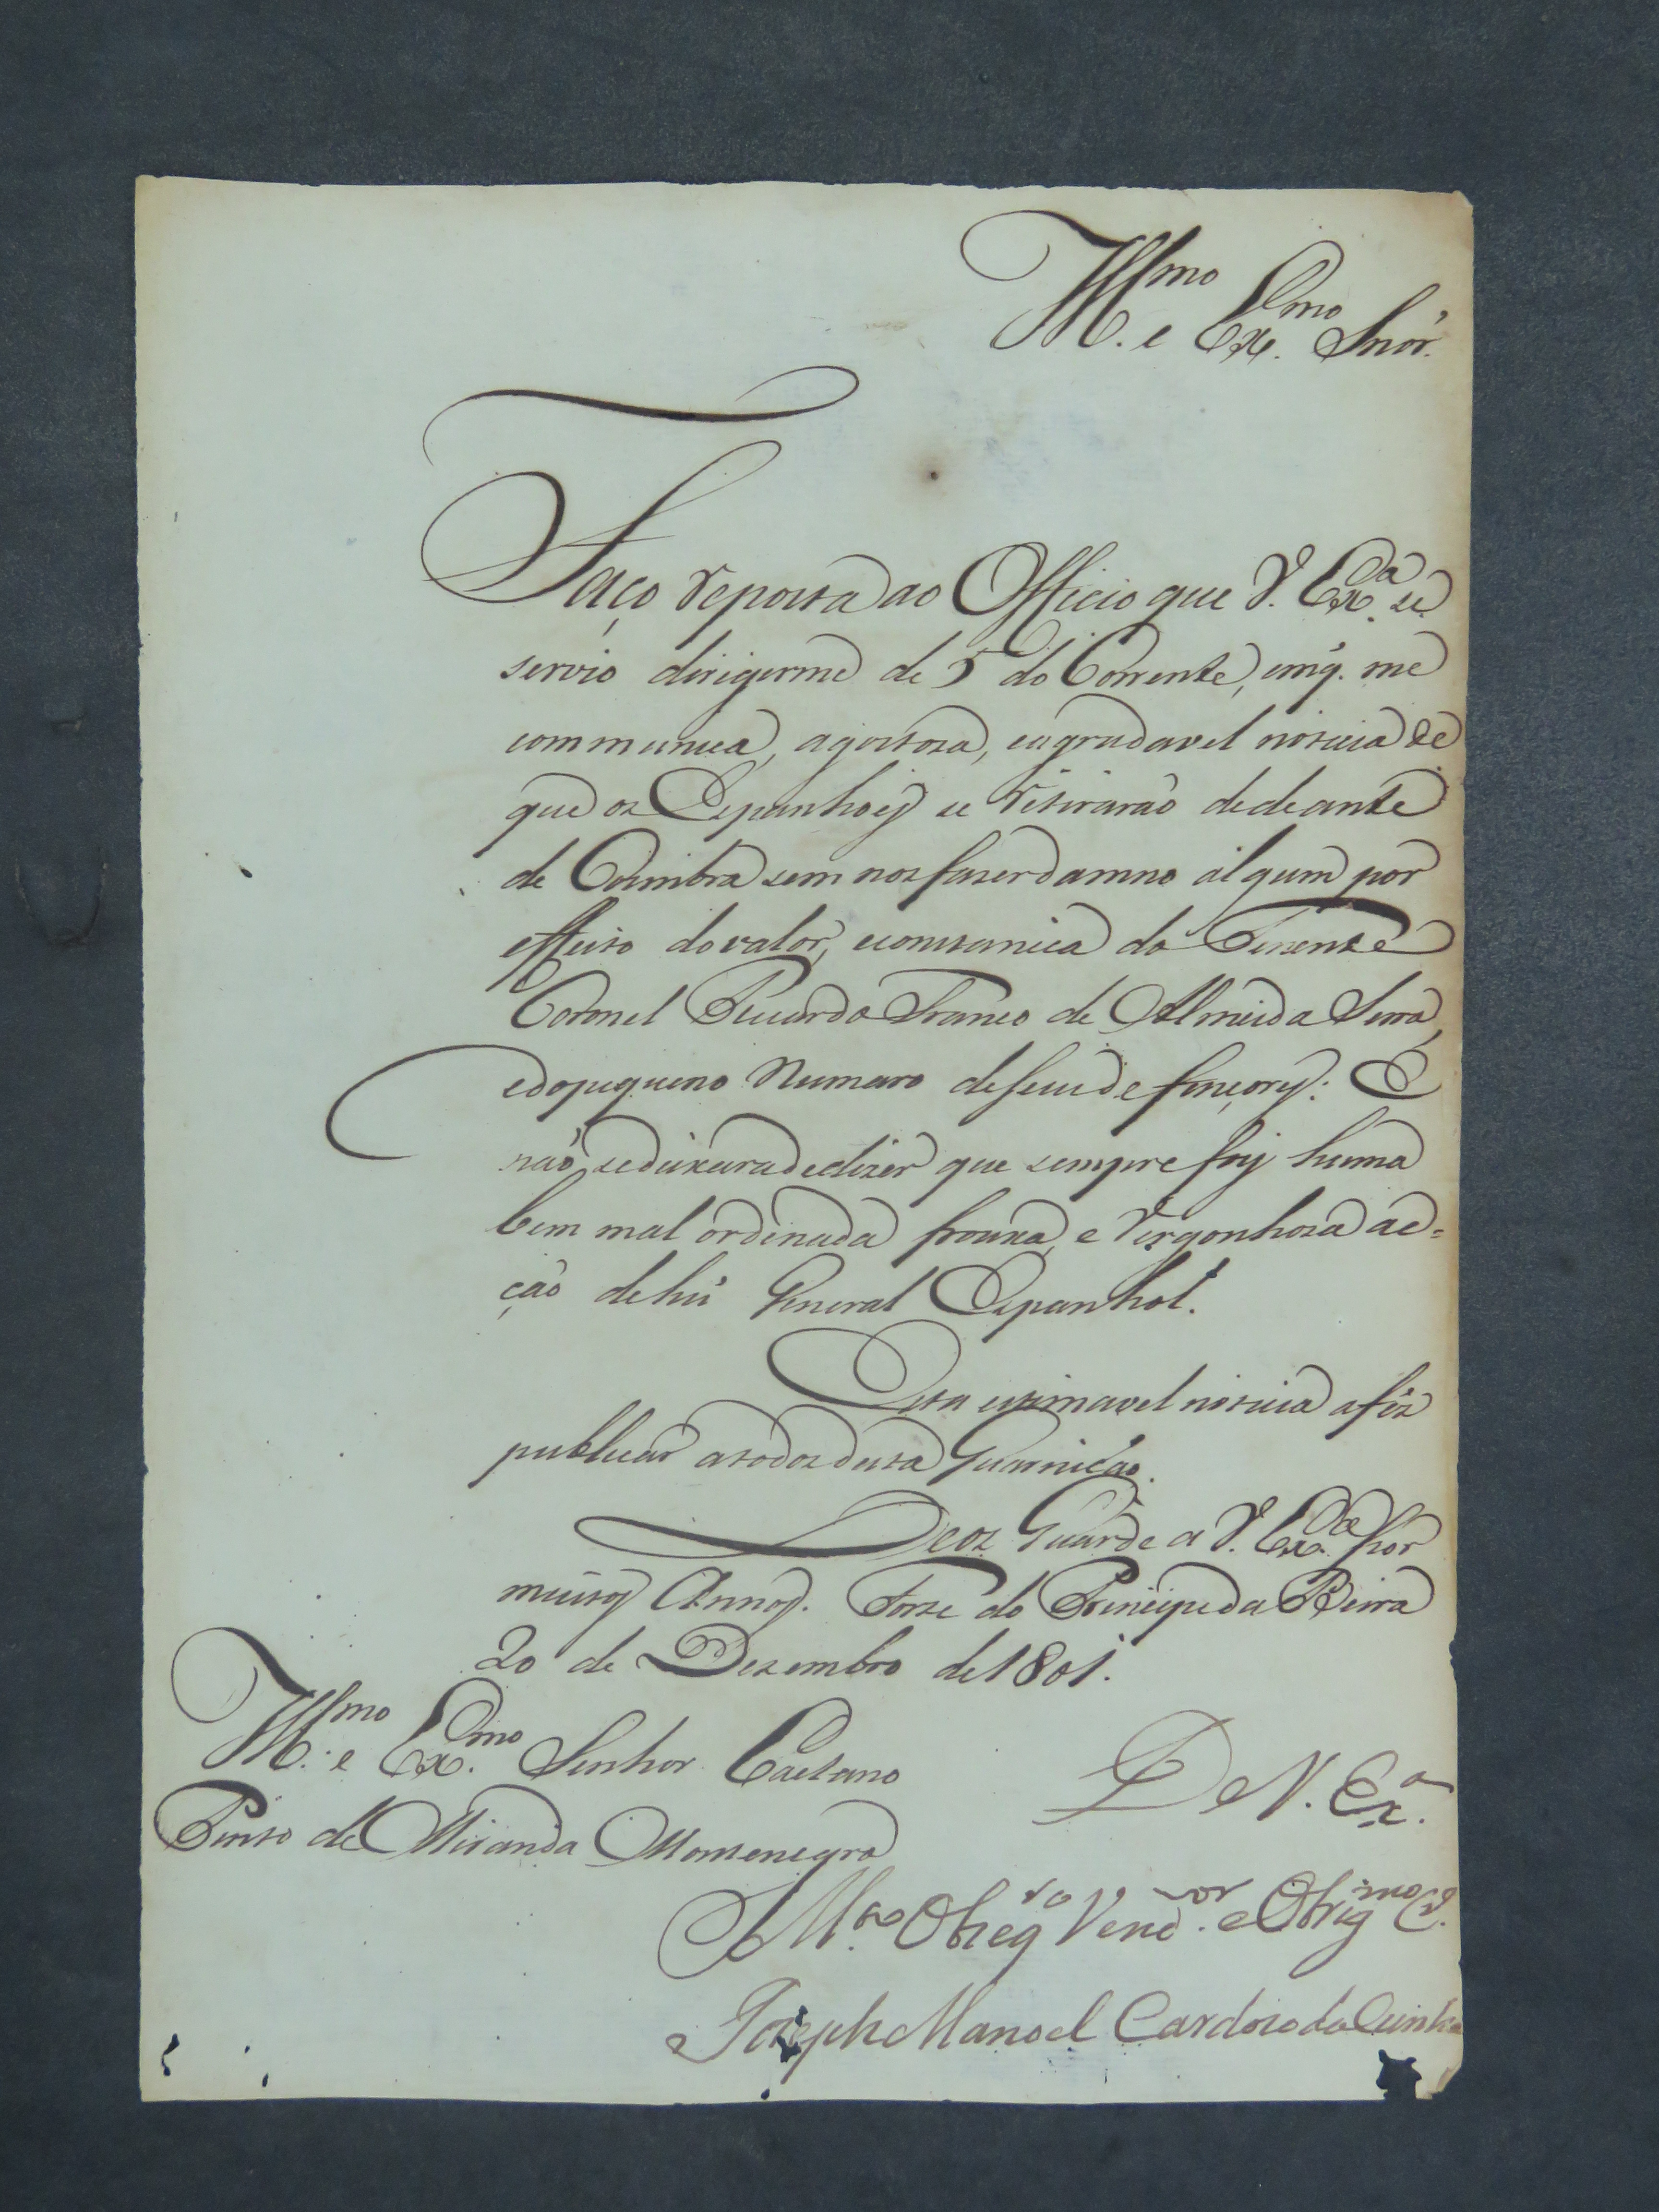 Ill.mo e Ex.mo Snõr.
Faço reposta ao Officio que V. Ex.a se
servio dirigirme de 5 do Corrente, em q. me
communica, agostosa, eagradavel noticia de
que os Espanhoes se retirarão dedeante
de Coimbra sem nos faser damno algum por
effeito dovalor, econstancia do Tenente
Coronel Ricardo Franco de Almeida Serra,
edopequeno Numaro deseus defençores: E
não sedeixara dedizer que sempre foy huma
bem mal ordenada frouxa, e Vergonhosa ac=
ção dehũ General Espanhol.
Esta estimavel noticia afis
publicar atodos desta Guarnição.
Deos Guarde a V. Ex.a por
muitos Annos. Forte do Principe da Beira
20 de Dezembro de 1801.
Ill.mo e Ex.mo Senhor Caetano
Pinto de Miranda Montenegro
De V. Ex.a
M.to Obrig.do Vene.or e Obrig.mo C.
Joseph Manoel Cardoso da Cunha